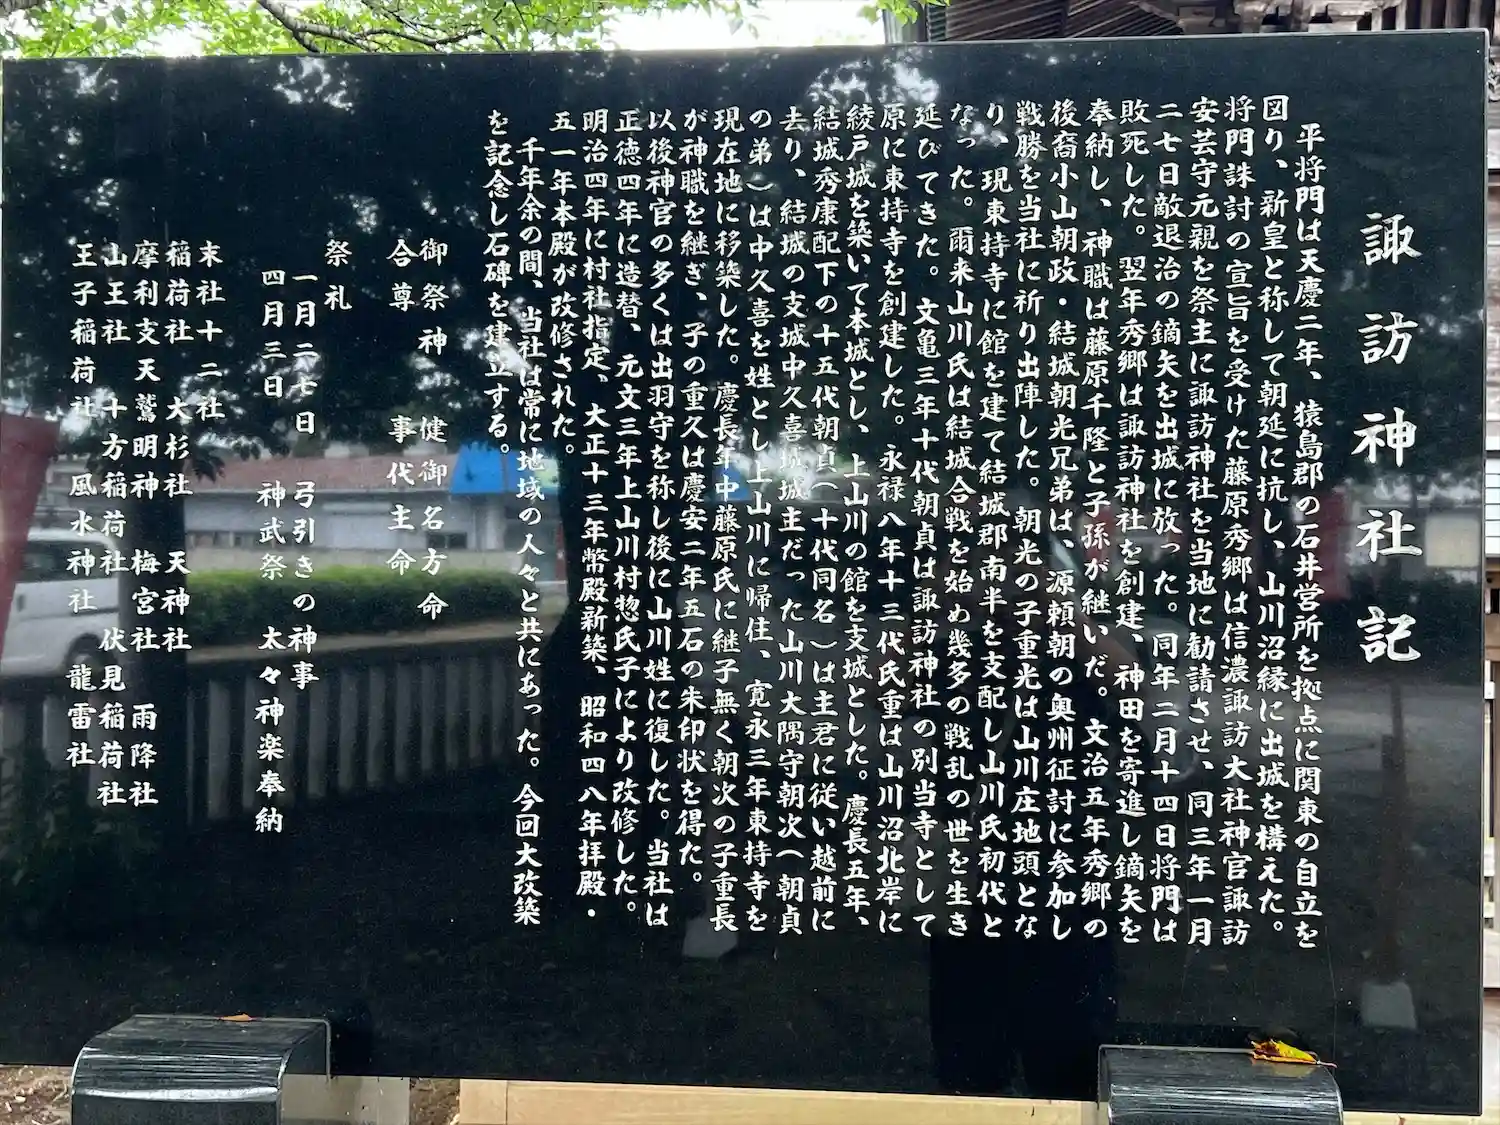 諏訪神社記
平将門は天慶二年、猿島郡の石井営所を拠点に関東の自立を
図り、新皇と称して朝廷に抗し、山川沼縁に出城を構えた。
将門誅討の宣旨を受けた藤原秀郷は信濃諏訪大社神官諏訪
安芸守元親を祭主に諏訪神社を当地に勧請させ、同三年一月
二七日敵退治の鏑矢を出城に放った。同年二月十四日将門は
敗死した。翌年秀郷は諏訪神社を創建、神田を寄進し鏑矢を
奉納し、神職は藤原千隆と子孫が継いだ。文治五年秀郷の
後裔小山朝政・結城朝光兄弟は、源頼朝の奥州征討に参加し
戦勝を当社に祈り出陣した。朝光の子重光は山川庄地頭とな
り、現東持寺に館を建て結城郡南半を支配し山川氏初代と
なった。爾来山川氏は結城合戦を始め幾多の戦乱の世を生き
延びてきた。文亀三年十代朝貞は諏訪神社の別当寺として
原に東持寺を創建した。永禄八年十三代氏重は山川沼北岸に
綾戸城を築いて本城とし、上山川の館を支城とした。慶長五年、
結城秀康配下の十五代朝貞（十代同名）は主君に従い越前に
去り、結城の支城中久喜城城主だった山川大隅守朝次（朝貞
の弟）は中久喜を姓とし上山川に帰住、寛永三年東持寺を
現在地に移築した。慶長年中藤原氏に継子無く朝次の子重長
が神職を継ぎ、子の重久は慶安二年五石の朱印状を得た。
以後神官の多くは出羽守を称し後に山川姓に復した。当社は
正徳四年に造替、元文三年上山川村惣氏子により改修した。
明治四年に村社指定、大正十三年幣殿新築、昭和四八年拝殿・
五一年本殿が改修された。
千年余の間、当社は常に地域の人々と共にあった。今回大改築
を記念し石碑を建立する。
御祭神 健御名方命
合尊 事代主命
祭礼
一月二七日 弓引きの神事
四月三日 神武祭 太々神楽奉納
末社十二社
稲荷社 大杉社 天神社
摩利支天鷲明神 梅宮社 雨降社
山王社 十方稲荷社 伏見稲荷社
王子稲荷社 風水神社 龍雷社